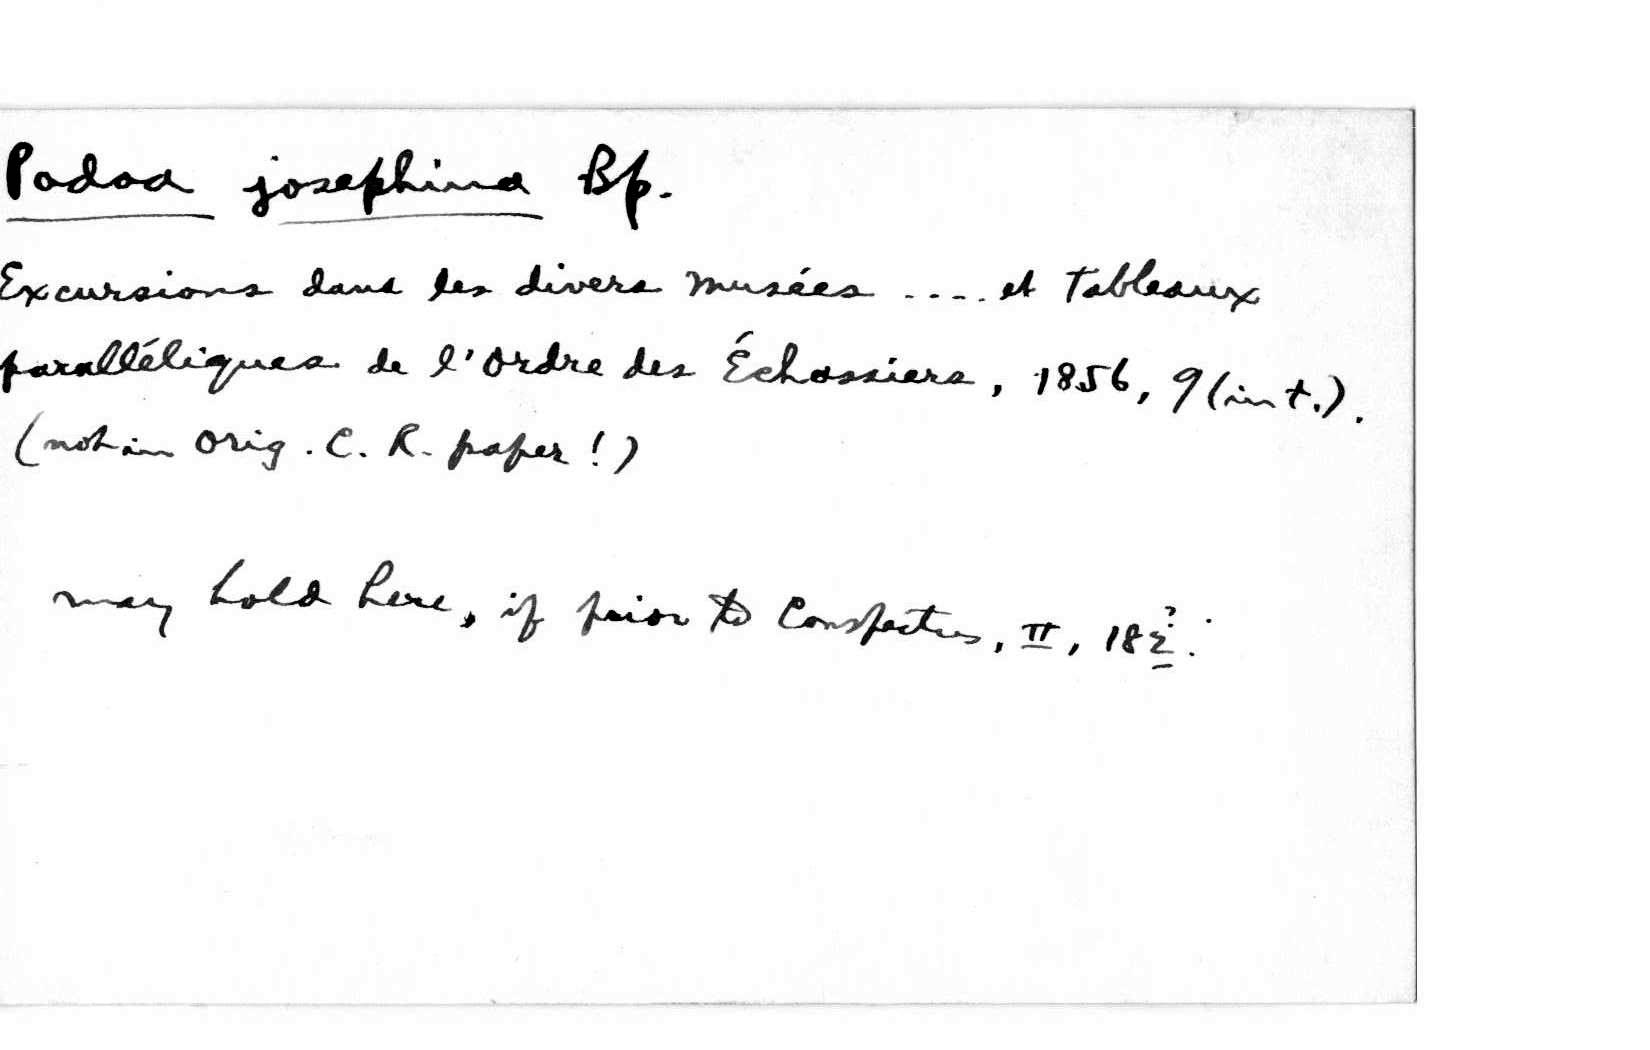 Podoa josephina Bp.
Excursions dans les divers musées .... et Tableaux
paralléliques de l'Ordre des Échassiers, 1856, 9 (in t.).
(not in orig. C. R. paper!)
may hold here, if prior to Conspectus, II, 182?.